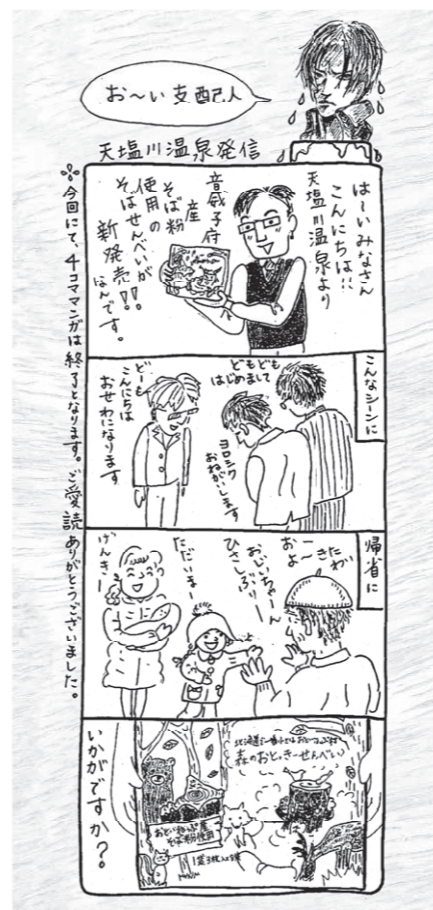 お〜い支配人
天塩川温泉発信
は〜いみなさん
こんにちは!!
天塩川温泉より
音威子府
産
そば粉
使用の
そばせんべいが
新発売!!
なんです。
こんなシーンに
どもども
はじめまして
ヨロシク
おねがいします
どーも
こんにちは
おせわになります
帰省に
おじいちゃーん
ひさしぶりー
ただいまー
げんきー
森のおとっきーせんべい
そば粉使用
いかがですか?
※今回にて、4コママンガは終了となります。ご愛読ありがとうございました。